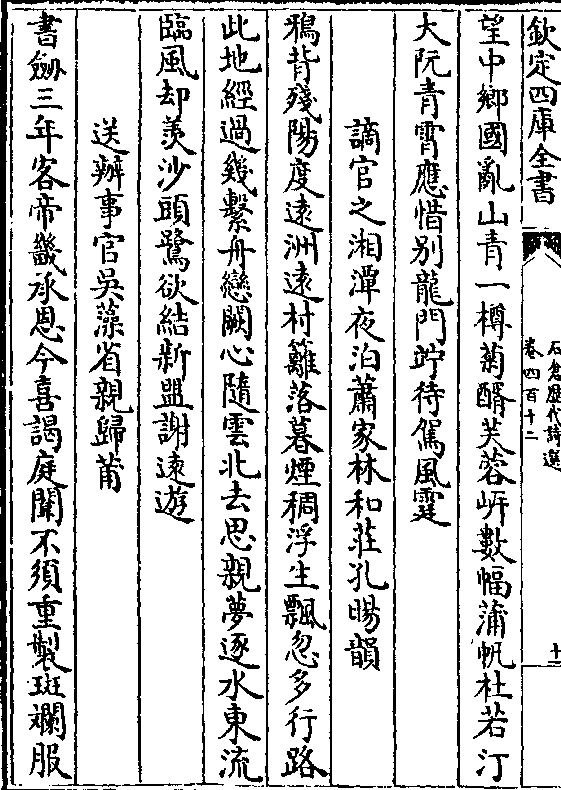 欽定四庫全書
石倉歷代詩選
卷四百十二
十一
望中鄉國亂山青一樽菊醑芙蓉岍數幅蒲帆杜若汀
大阮青霄應惜别龍門竚待駕風霆
謫官之湘潭夜泊蕭家林和莊孔暘韻
鴉背殘陽度遠洲遠村籬落暮煙稠浮生飄忽多行路
此地經過幾繫舟戀闕心隨雲北去思親夢逐水東流
臨風却羨沙頭鷺欲結新盟謝遠遊
送辦事官吳藻省親歸莆
書劔三年客帝畿承恩今喜謁庭闈不須重製斑斕服